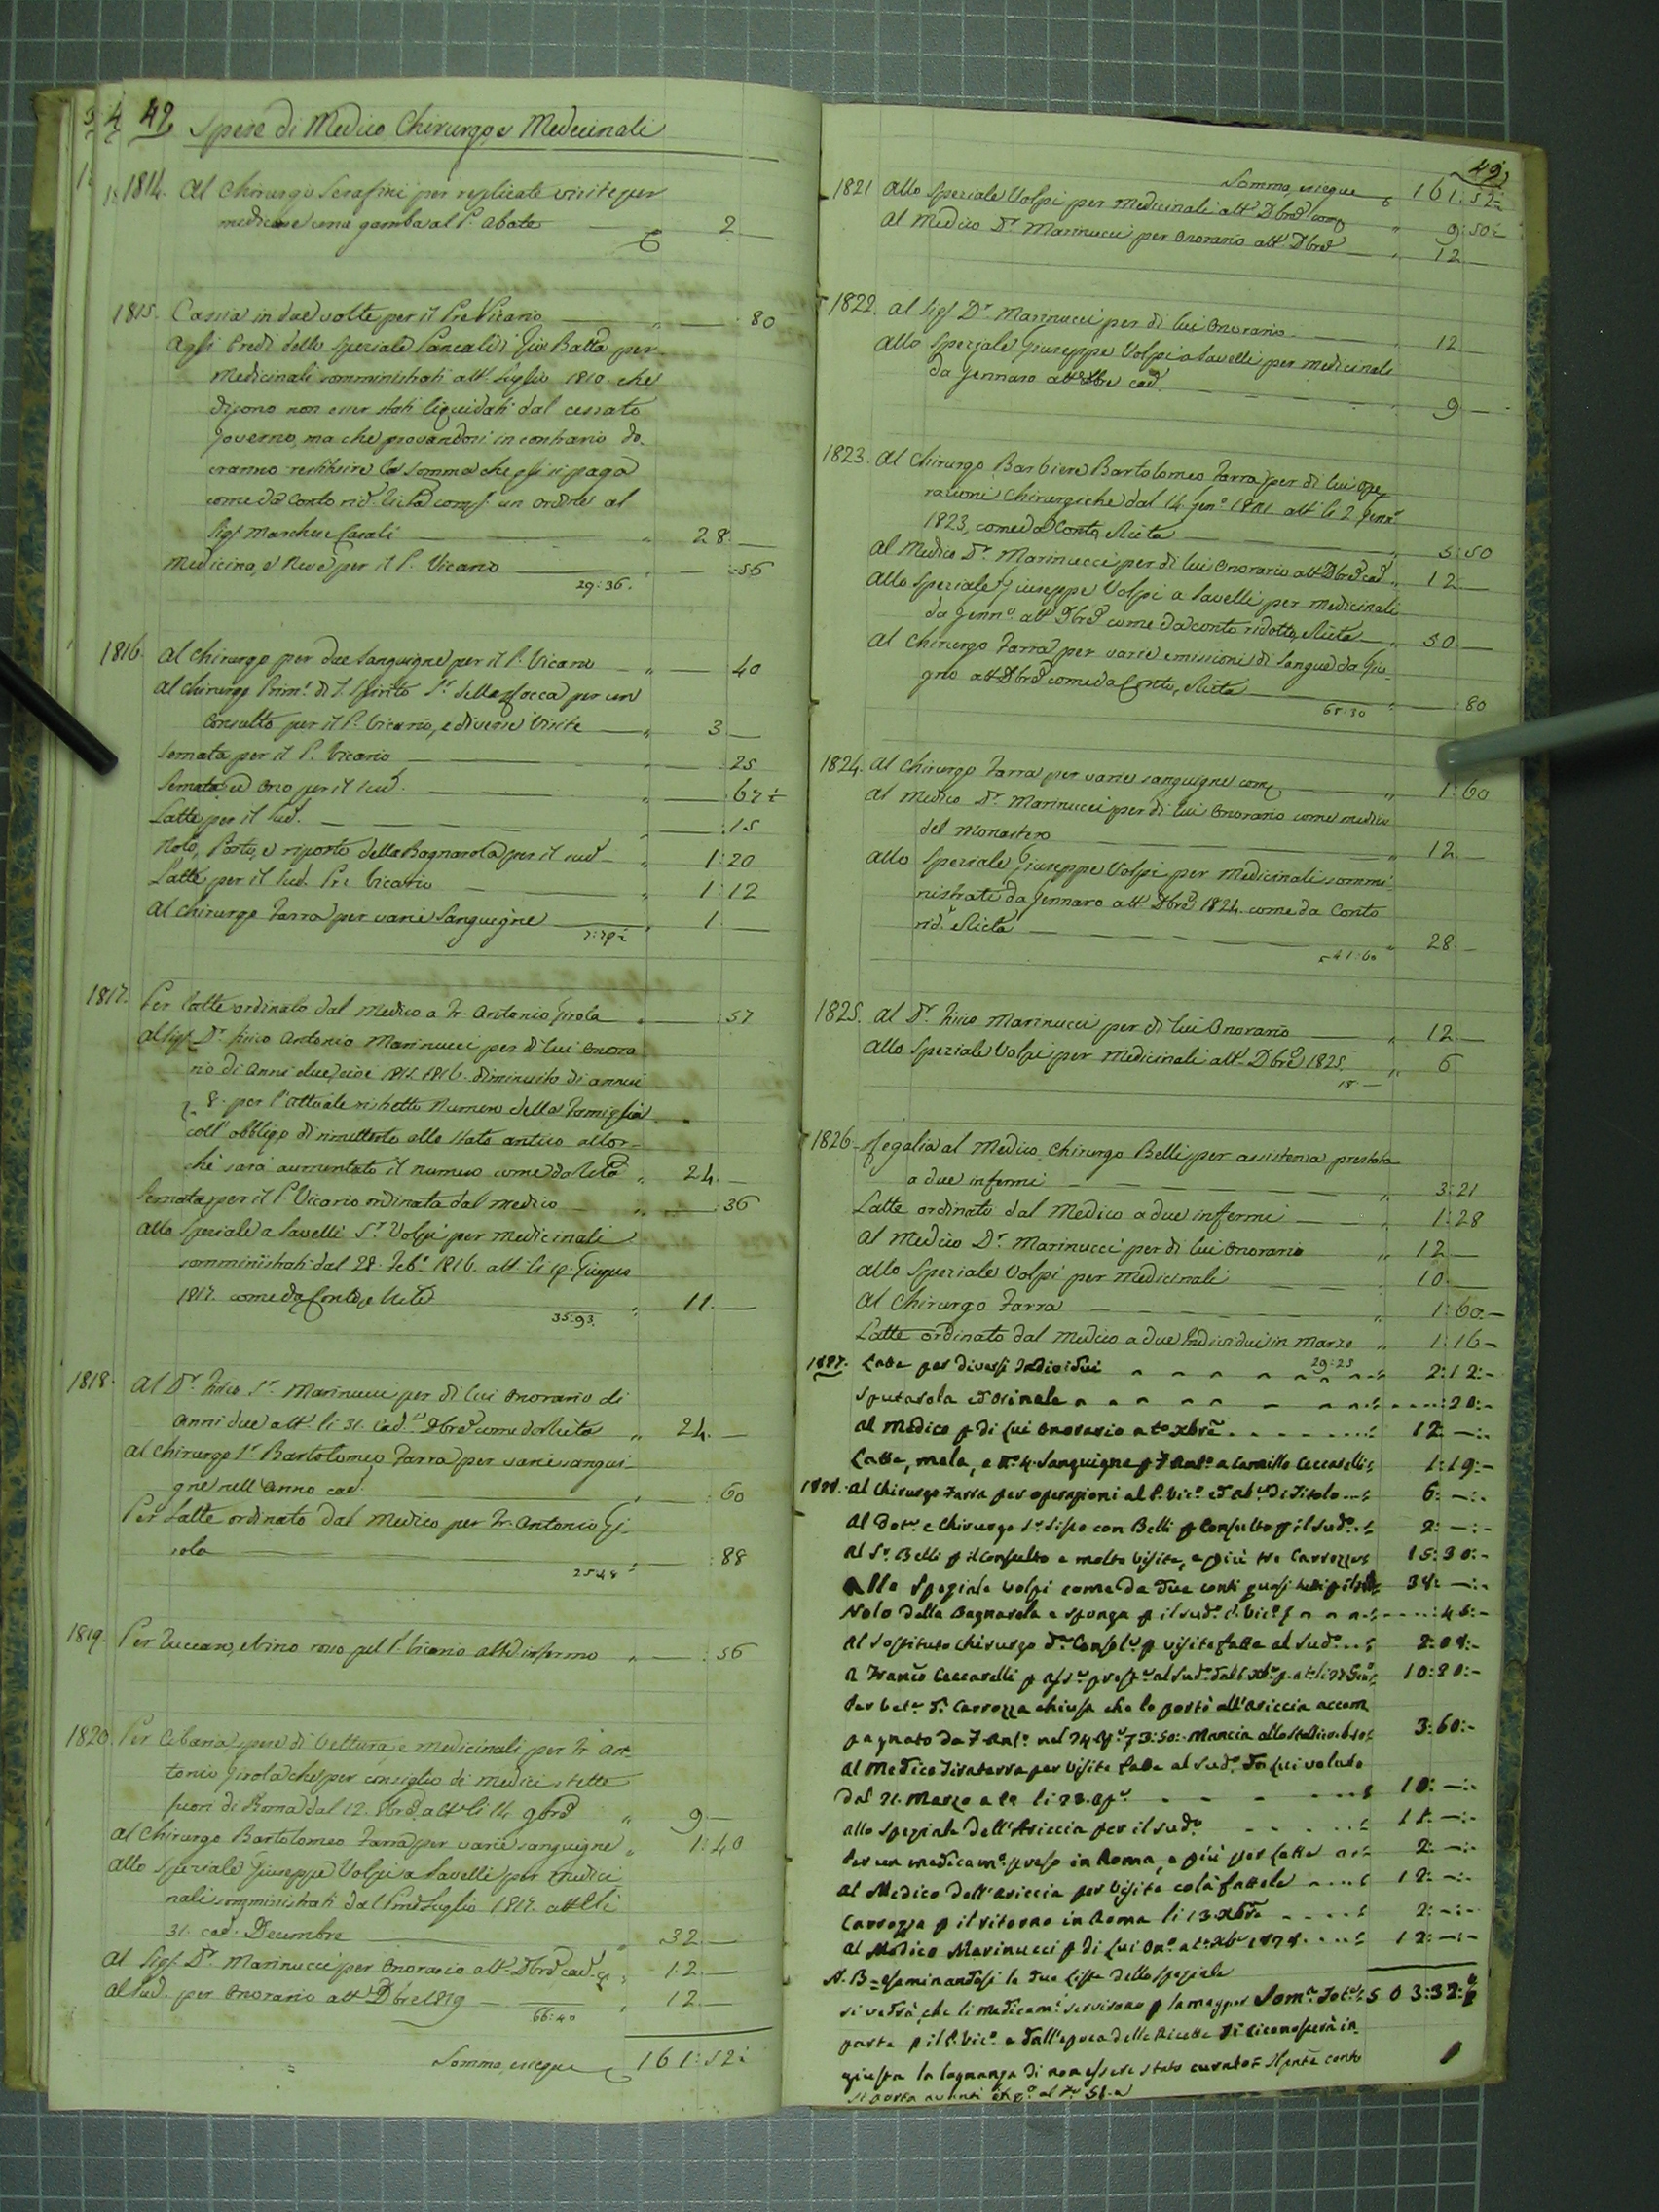 49
Spese di Medico Chirurgo, e Medicinali
1814. Al Chirurgo Serafini per replicate visite per
medicare una gamba al P. Abate 2 —
1815. Cassia in due volte per il Pre Vicario — :80
Agli Eredi dello Speziale Pancaldi Gio Batta per
Medicinali somministrati att. Luglio 1810. che
dicono non esser stati liquidati dal cessato
Governo, ma che provandosi in contrario do-
vranno restituire la somma che gli si paga
come da Conto rid. un ordine al
Sigr Marchese Casali 28. —
Medicina, e Neve per il P. Vicario — :56
29:36.
1816. Al Chirurgo per due Sanguigne per il P. Vicario — :40
Al Chirurgo Prim. di S. Spirito Sr. della Rocca per un
Consulto per il P. Vicario, e diverse Visite 3 —
Semata per il P. Vicario — :25
Semata ed Orzo per il sud. — :67½
Latte per il sud. — :15
Nolo, Porto, e riporto della Bagnarola per il sud. 1:20
Latte per il sud. Pre Vicario 1:12
Al Chirurgo Farra per varie Sanguigne 1. —
7:79½
1817. Per latte ordinato dal Medico a Fr. Antonio Girola — :57
Al Sigr Dr. Antonio Marinucci per di lui Onora
rio di Anni due, cioè 1815. 1816. diminuito di annui
8. per l'attuale ristretto Numero della Famiglia
coll' obbligo di rimetterlo allo stato antico allor-
chè sarà aumentato il numero come da 24. —
Semata per il P. Vicario ordinata dal Medico — :36
Allo Speziale a Savelli Sr. Volpi per Medicinali
somministrati dal 28 Feb. 1816. att. li 19. Giugno
1817. come da Conto, e 11. —
35:93.
1818. Al Dr. Sr. Marinucci per di lui Onorario di
Anni due att. li 31. Cad. Xbre come da 24. —
Al Chirurgo Sr. Bartolomeo Farra per varie sangui-
gne nell' Anno cad. — :60
Per Latte ordinato dal Medico per Fr. Antonio Gi
rola — :88
25:48
1819. Per Zuccaro, e Vino rosso pel P. Vicario infermo — :56
1820. Per Cibaria, spese di Vettura, e medicinali per Fr. An-
tonio Girola che per consiglio di Medici stette
fuori di Roma dal 12. 8bre att. li 14. 9bre 9 —
Al Chirurgo Bartolomeo Farra per varie sanguigne 1:40
Allo Speziale Giuseppe Volpi a Savelli per medici
nali somministrati dal Luglio 1817. att. li
31. cad. Decembre 32. —
Al Sigr. Dr. Marinucci per Onorario att. Xbre cad. 12. —
Al sud. per Onorario att. Xbre 1819 12. —
66:40
Somma, e segue 161:52½
49
Somma, e segue 161:52½
1821 Allo Speziale Volpi per Medicinali att. Xbre 9:50
Al Medico Dr. Marinucci per Onorario att. Xbre 12 —
1822. Al Sigr Dr. Marinucci per di lui Onorario 12 —
Allo Speziale Giuseppe Volpi a Savelli per medicinali
da Gennaro att. Xbre cad. 9 —
1823. Al Chirurgo Barbiere Bartolomeo Farra per di lui ope
razioni Chirurgiche dal 14. Genn. 1821 att. li 2. Genn.
1823, come da Conto, e 5:50
Al Medico Dr. Marinucci per di lui Onorario att. Xbre cad. 12 —
Allo Speziale Giuseppe Volpi a Savelli per medicinali
da Genn. att. Xbre come da conto ridotto, e 50 —
Al Chirurgo Farra per varie emissioni di Sangue da Giu-
gno att. Xbre come da Conto, e — :80
68:30
1824. Al Chirurgo Farra per varie sanguigne 1:60
Al Medico Dr. Marinucci per di lui Onorario come medico
del Monastero 12 —
Allo Speziale Giuseppe Volpi per Medicinali sommi-
nistrati da Gennaro att. Xbre 1824. come da Conto
rid. e 28 —
41:60
1825. Al Dr. Marinucci per di lui Onorario 12 —
Allo Speziale Volpi per Medicinali att. Xbre 1825. 6
18 —
1826. Regalia al Medico Chirurgo Belli per assistenza prestata
a due infermi 3:21
Latte ordinato dal Medico a due infermi 1:28
Al Medico Dr. Marinucci per di lui Onorario 12 —
Allo Speziale Volpi per Medicinali 10 —
Al Chirurgo Farra 1:60 —
Latte ordinato dal Medico a due Individui in Marzo 1:16 —
29:25
1827. Latte per diversi Individui 2:12:-
Sputarola ed Orinale :20:-
Al Medico p di lui Onorario a to Xbre 12 —:-
Latte, mela, e No. 4. Sanguigne p F. Anto. a Camillo Ceccarelli 1:19:-
1828. Al Chirurgo Farra per operazioni al P. Vico. ed Ab. di Titolo 6: —:-
Al Dot. e Chirurgo Sr. Sisco con Belli p Consulto p il sudo. 2: —:-
Al Sr. Belli p il Consulto e molte Visite, e più tre Carrozze 15:30:-
Allo Speziale Volpi come da due conti quasi tutti p il 38: —:-
Nolo della Bagnarola e sponga p il sudo. P. Vico. :45:-
Al Sostituto Chirurgo di Consol. p visite fatte al sudo. 2:08:-
A Franco Ceccarelli p ass. prest. al sudo. 10:80:-
Per Vet. di Carrozza chiusa che lo portò all'Ariccia accom
pagnato da F. Anto. nel 24. 3:50:- Mancia allo 3:60:-
Al Medico Tiraterra per Visite fatte al sudo. da lui voluto
dal 21. Marzo a to li 23. 10: —:-
Allo Speziale dell'Ariccia per il sudo. 18: —:-
Per un medicamo. preso in Roma, e più per Latte 2: —:-
Al Medico dell'Ariccia per Visite colà fattele 12: —:-
Carrozza p il ritorno in Roma li 13. Xbre 2: —:-
Al Medico Marinucci p di lui Ono. a to Xbre 1828 12: —:-
N. B. = Esaminandosi le due Liste dello Speziale
si vedrà, che li medicam. servirono p la maggior Som. Tot. 503:32:
parte p il P. Vico. e dall'epoca delle Ricette si ricono. in-
giusta la lagnanza di non essere stato curato =
si porta avanti al 58.